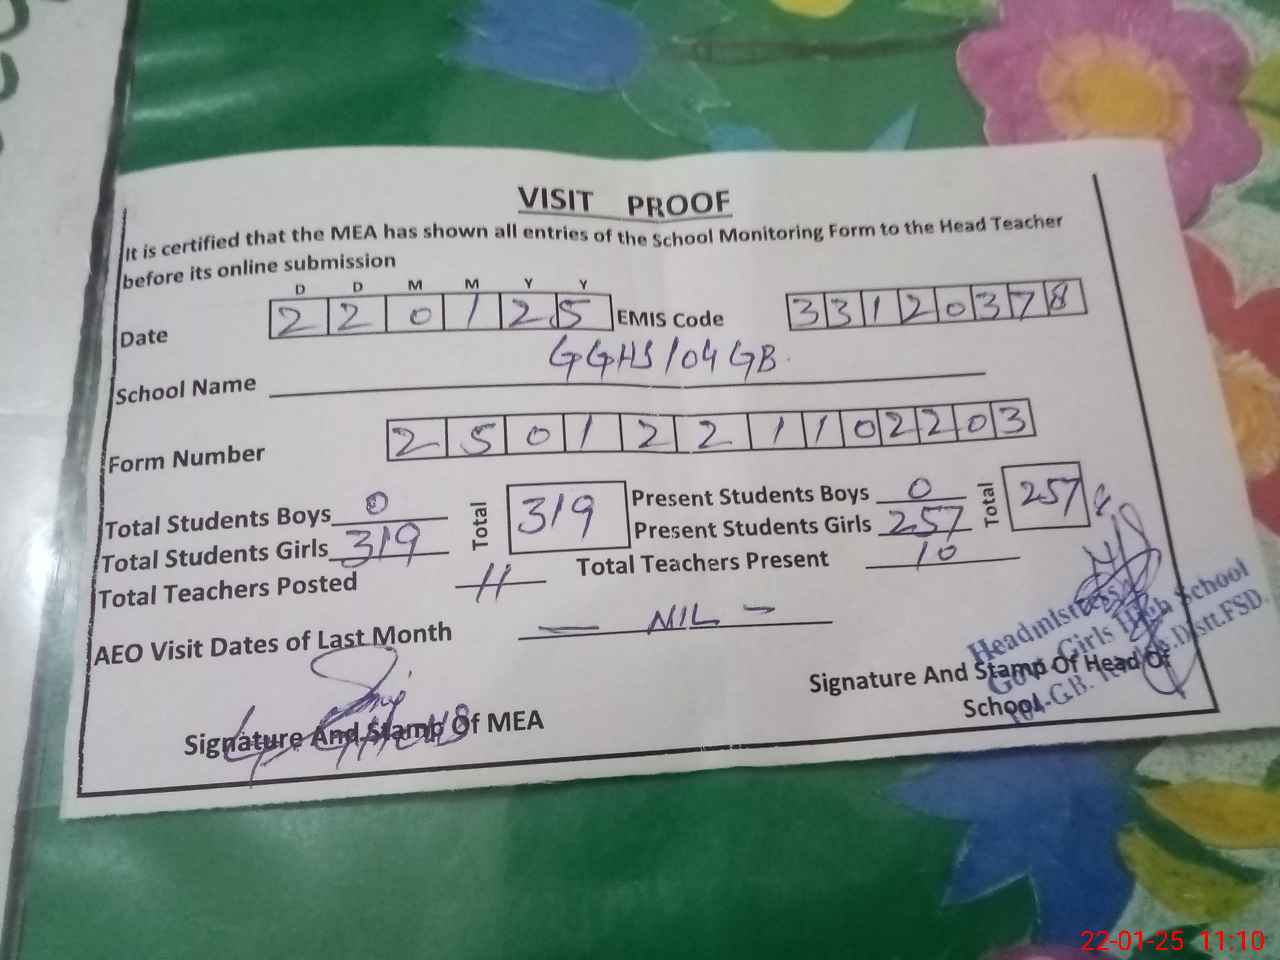 VISIT PROOF
It is certified that the MEA has shown all entries of the School Monitoring Form to the Head Teacher
before its online submission
D D M M Y Y
Date 2 2 0 1 2 5 EMIS Code 3 3 1 2 0 3 7 8
School Name GGHS 104 GB.
Form Number 2 5 0 1 2 2 1 1 0 2 2 0 3
Total Students Boys 0 Total 319 Present Students Boys 0 Total 257
Total Students Girls 319 Present Students Girls 257
Total Teachers Posted 11 Total Teachers Present 10
AEO Visit Dates of Last Month — NIL —
Signature And Stamp Of MEA
Signature And Stamp Of Head Of
School
Headmistress
Govt. Girls High School
104-G.B. Distt.FSD.
22-01-25 11:10